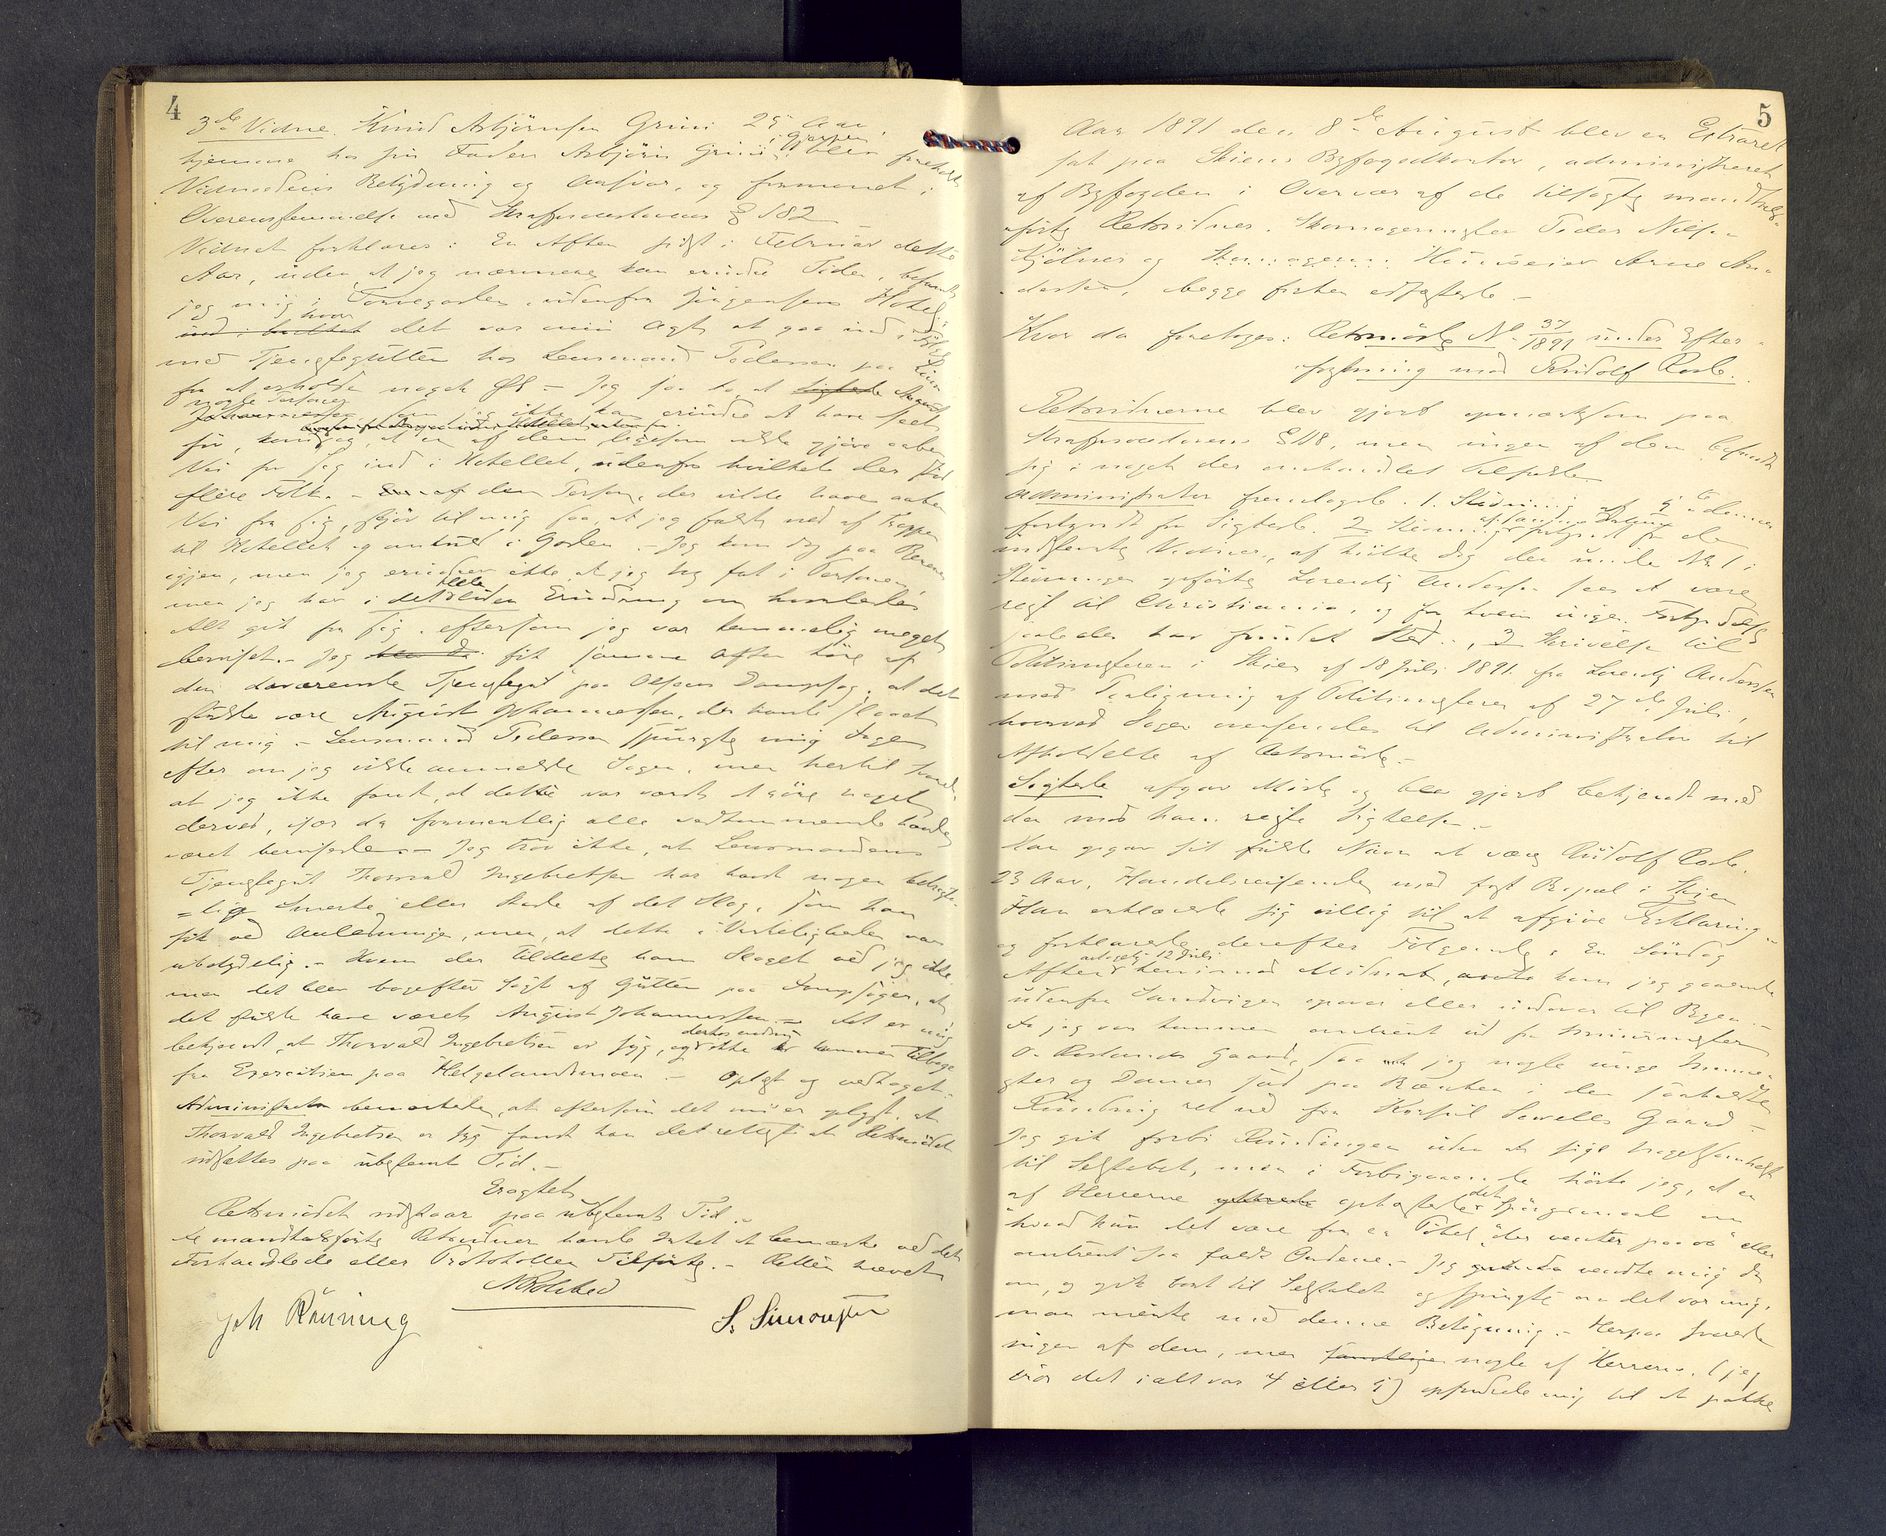 4
3die Vidne. Knud Asbjörnsen Grini 29 Aar,
hjemme hos sin Fader Asbjörn Grini i Gjerpen, blev foreholdt
Vidnedens Betydning og Ansvar, og formanet i
Overensstemmelse med Straffeprocesslovens § 182
Vidnet forklarer: En Aften sidst i Februar dette
Aar, uden at jeg nærmere kan erindre Tiden, befandt
jeg mig i Torvegaarden udenfor Jörgensens Hotel,
hvor det var min Agt at gaa ind,
med Tjenestegutten hos Lensmand Pedersen paa
for at erholde noget Øl - Jeg saa da at
nogle Personer som jeg ikke kan erindre at have seet
før, kom og, at en af dem ligesom vilde gjöre aaben
Vei for sig ind i Hotellet, udenfor hvilket der stod
flere Folk. - den Person, der vilde have aaben
Vei for sig, skjöv til mig saa, at jeg faldt ned af Trappen
til Hotellet og omkuld i Gaarden. - Jeg kom dog paa Benene
igjen, men jeg erindrer ikke, at jeg tog fat i Personen,
men jeg har i det Hele liden Erindring om hvorledes
Alt gik for sig, eftersom jeg var temmelig meget
beruset. - Jeg fik samme Aften höre af
den daværende Tjenestegut paa Olsens Dampsag, at det
skulde være August Johannessen, der havde slaaet
til mig. - Lensmand Pedersen spurgte mig Dagen
efter om jeg vilde anmelde Sagen, men hertil svared.
at jeg ikke fandt, at dette var værdt at göre noget
derved, især da formentlig alle vedkommende havde
været berusede. - Jeg tror ikke, at Lensmandens
Tjenestegut Thorvald Ingebretsen har havt nogen betragte-
=lig Smerte eller Skade af det Slag, som han
fik ved Anledningen, men, at dette i Virkeligheden var
ubetydelig. - Hvem der tildelte ham Slaget ved jeg ikke,
men det blev bagefter sagt af Gutten paa Dampsagen, at
det skulde have været August Johannessen. - Det er mig
bekjendt, at Thorvald Ingebretsen er syg, og ikke er kommen tilbage
fra Exercitien paa Helgelandsmoen. - Oplæst og vedtaget.
Administrator bemærkede, at eftersom det nu er oplyst, at
Thorvald Ingebretsen er syg fandt han det rettest at Retsmödet
udsættes paa ubestemt Tid. -
Eragtet
Retsmödet udstaar paa ubestemt Tid. -
De mandtalsförte Retsvidner havde Intet at bemærke ved det
Forhandlede eller Protokollen Tilförte. - Retten hævet
Joh Rönning
S. Simonsen
5
Aar 1891 den 8de August blev en Extraret
sat paa Skiens Byfogedkontor, administreret
af Byfogden i Overvær af de tilsagte mandtals-
förte Retsvidner, Skomagermester Peder Nilsen
Kjölner og Huuseier Arne An-
dersen, begge forhen edfæstede -
Hvor da foretoges: Retsmöde No 37/1891 under Efter-
forskning mod Rudolf Rosle.
Retsvidnerne blev gjort opmærksom paa
Straffeprocesslovens § 118, men ingen af dem befandt
sig i noget der omhandlet Tilfælde.
Administrator fremlagde 1. Stævning af 4de dennes
forkyndt for Sigtede. 2 Stævning af samme Datum forkyndt for de
indstævnte Vidner, af hvilke dog den under No 1 i
Stævningen opförte Lovendy Andersen sees at være
reist til Christiania, og for hvem ingen Forkyndelse
saaledes har fundet Sted. -, 3 Skrivelse til
Politimesteren i Skien af 18 Juli 1891 fra Lovendy Andersen
med Paategning af Politimesteren af 27de Juli,
hvorved Sagen oversendes til Administrator til
Afholdelse af Retsmöde. -
Sigtede afgav Möde og blev gjort bekjendt med
den mod ham reiste Sigtelse. -
Han opgav sit fulde Navn at være Rudolf Rosle,
23 Aar, Handelsreisende med fast Bopæl i Skien
Han erklærede sig villig til at afgive Forklaring -
og forklarede derefter Fölgende: En Söndag
Aften antagelig 12 Juli henimod Midnat, kom jeg gaaende
udenfor Landvigen opover eller indover til Byen. -
Da jeg var kommen omtrent ud for Murmester
O. Roslands Gaard, saa jeg nogle unge Herre-
gter og Damer sad paa Bænken i den saakaldte
Runding ret ned for Konsul Sewells Gaard -
Jeg gik forbi Rundingen uden at sige nogetsomhelst
til Selskabet, men i Forbigaaende hörte jeg, at en
af Herrerne opkastede det Spörgsmaal om
"hvad kan det være for en Töbel, der venter paa os" eller
omtrent saa faldt Ordene. - Jeg vendte mig da
om, og gik bort til Selskabet og spurgte om det var mig,
man mente med denne Betegning. - Herpaa svarede
ingen af dem, men nogle af Herrerne, (jeg
tror det ialt var 4 eller 5) opfordrede mig til at pakke